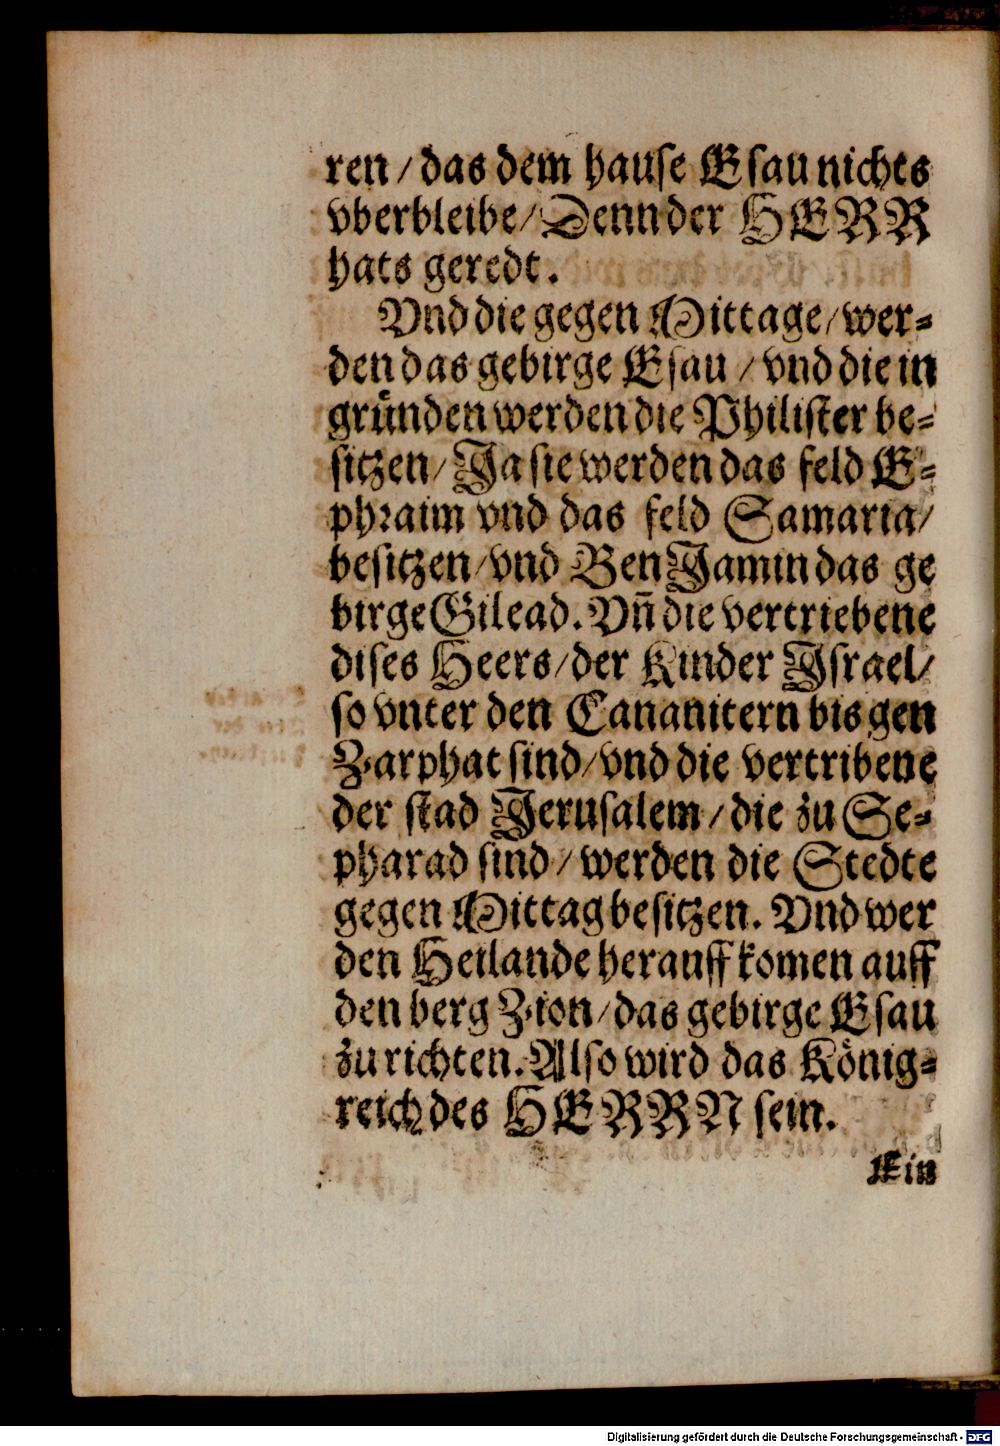 ren / das dem hause Esau nichts
vberbleibe / Denn der HERR
hats geredt.
Vnd die gegen Mittage / wer-
den das gebirge Esau / vnd die in
gründen werden die Philister be-
sitzen / Ja sie werden das feld E-
phraim vnd das feld Samaria /
besitzen / vnd BenJamin das ge
birge Gilead. Vñ die vertriebene
dises Heers / der Kinder Jsrael /
so vnter den Cananitern bis gen
Zarphat sind / vnd die vertribene
der stad Jerusalem / die zu Se-
pharad sind / werden die Stedte
gegen Mittag besitzen. Vnd wer
den Heilande herauff komen auff
den berg Zion / das gebirge Esau
zu richten. Also wird das König-
reich des HERRN sein.
Ein
Digitalisierung gefördert durch die Deutsche Forschungsgemeinschaft - DFG